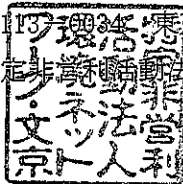 113-0034 東
定非営利活動法
特定非営利
活動法人
環境ネット
ワーク・文京